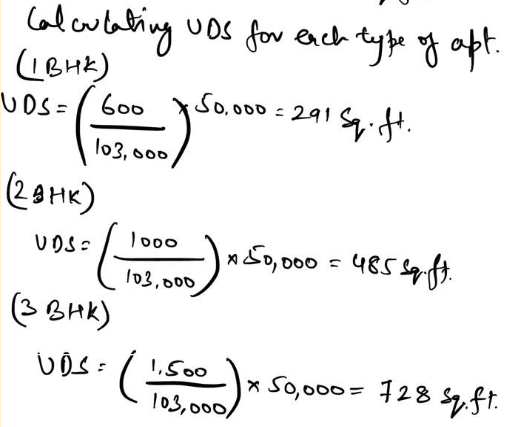 Calculating UDS for each type of apt.
(1BHK)
UDS = (600 / 103,000) x 50,000 = 291 Sq. ft.
(2BHK)
UDS = (1000 / 103,000) x 50,000 = 485 Sq. ft.
(3 BHK)
UDS = (1,500 / 103,000) x 50,000 = 728 Sq. ft.